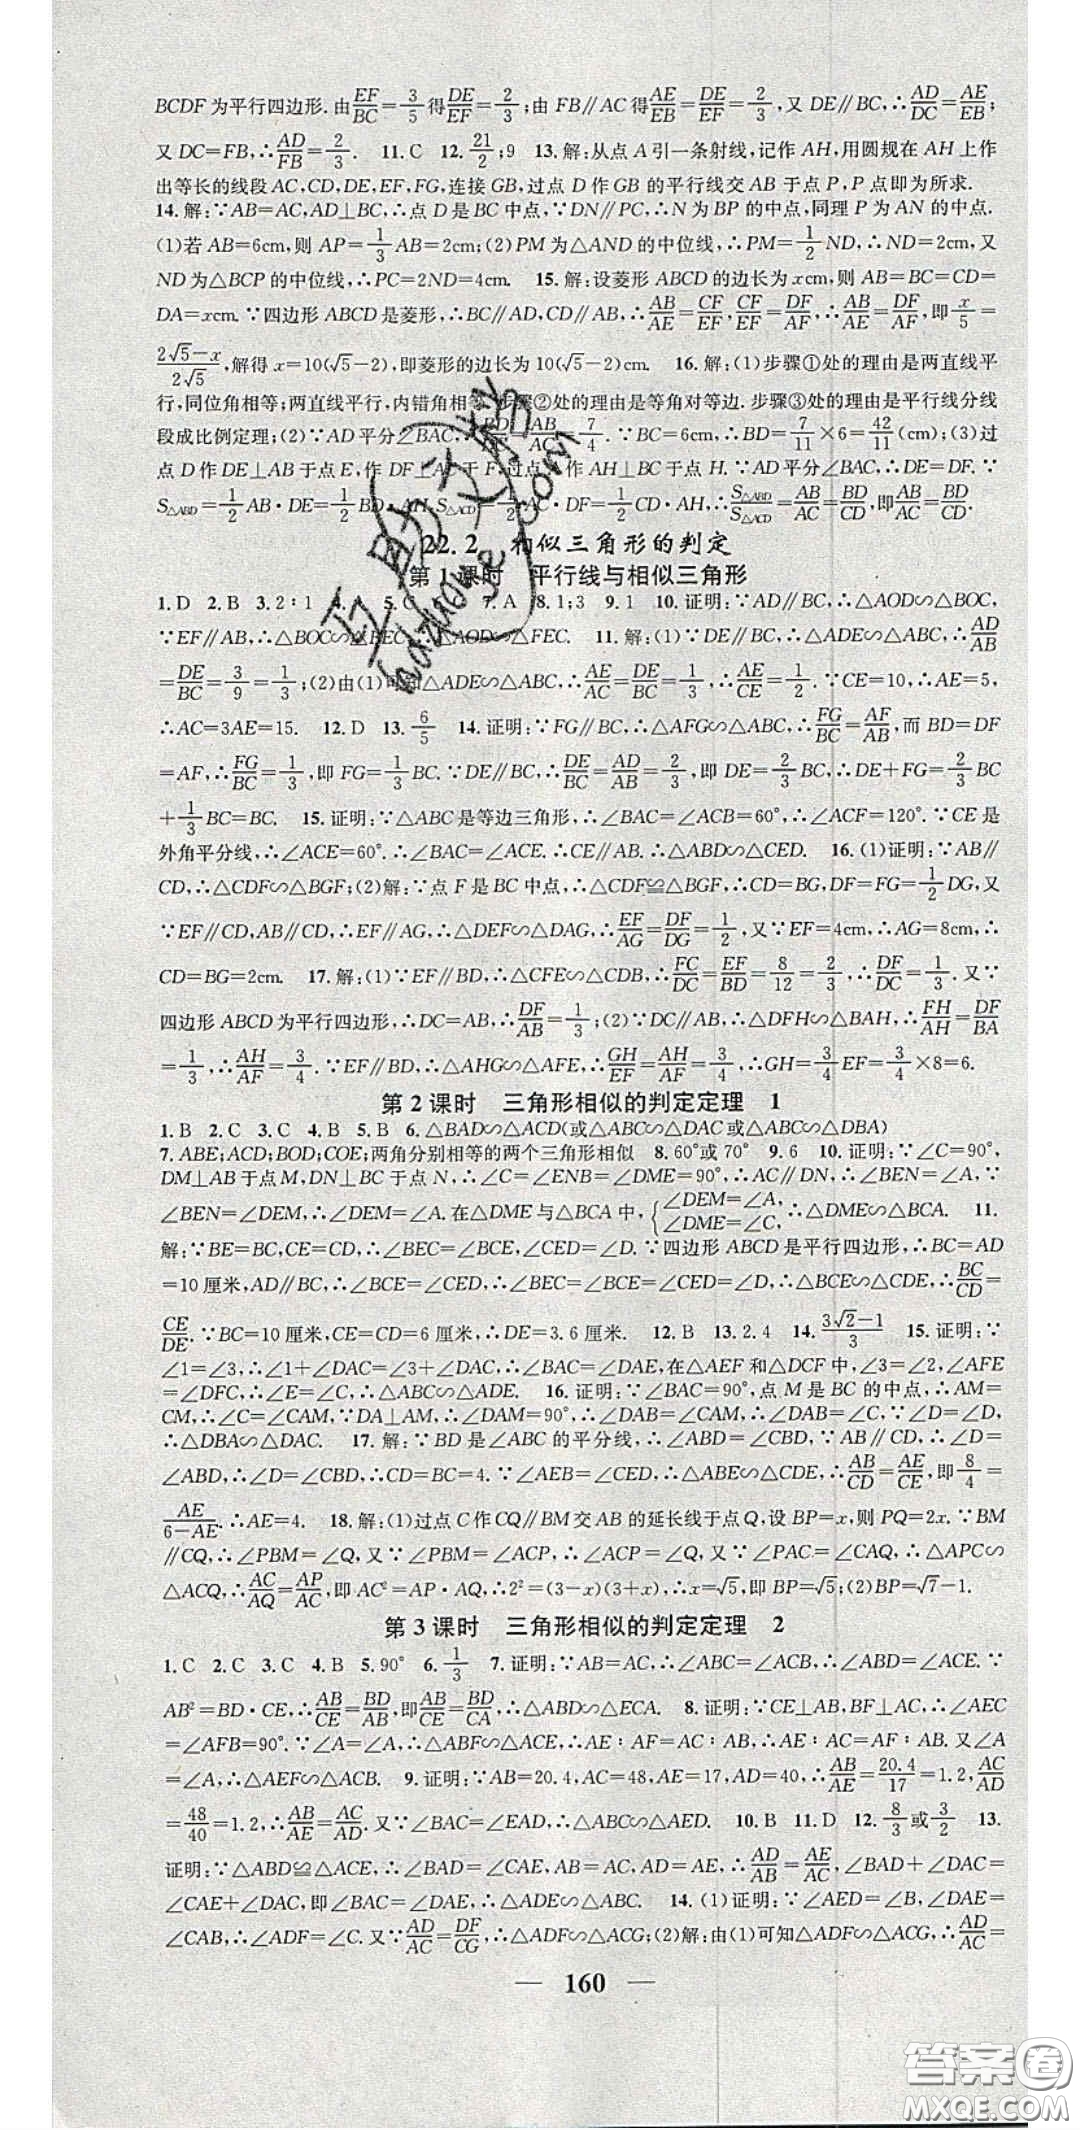 BCDF为平行四边形.由EF/BC=3/5得DE/EF=2/3;由FB∥AC得AE/EB=DE/EF=2/3,又DE∥BC,∴AD/DC=AE/EB;
又DC=FB,∴AD/FB=2/3. 11.C 12.21/2;9 13.解:从点A引一条射线,记作AH,用圆规在AH上作
出等长的线段AC,CD,DE,EF,FG,连接GB,过点D作GB的平行线交AB于点P,P点即为所求.
14.解:∵AB=AC,AD⊥BC,∴点D是BC中点,∵DN∥PC,∴N为BP的中点,同理P为AN的中点.
(1)若AB=6cm,则AP=1/3AB=2cm;(2)PM为△AND的中位线,∴PM=1/2ND,∴ND=2cm,又
ND为△BCP的中位线,∴PC=2ND=4cm. 15.解:设菱形ABCD的边长为xcm,则AB=BC=CD=
DA=xcm.∵四边形ABCD是菱形,∴BC∥AD,CD∥AB,∴AB/AE=CF/EF,CF/EF=DF/AF,∴AB/AE=DF/AF,即x/5=
(2√5-x)/2√5,解得x=10(√5-2),即菱形的边长为10(√5-2)cm. 16.解:(1)步骤①处的理由是两直线平
行,同位角相等;两直线平行,内错角相等.步骤②处的理由是等角对等边.步骤③处的理由是平行线分线
段成比例定理;(2)∵AD平分∠BAC,∴BD/ =AB/AC=7/4.∵BC=6cm,∴BD=7/11×6=42/11(cm);(3)过
点D作DE⊥AB于点E,作DF⊥AC于F,过点 作AH⊥BC于点H.∵AD平分∠BAC,∴DE=DF.∵
S△ABD=1/2AB·DE=1/2BD·AH,S△ACD=1/2AC·DF=1/2CD·AH,∴S△ABD/S△ACD=AB/AC=BD/CD,即AB/AC=BD/CD.
22.2 相似三角形的判定
第1课时 平行线与相似三角形
1.D 2.B 3.2∶1 4. 5.C 7.A 8.1;3 9.1 10.证明:∵AD∥BC,∴△AOD∽△BOC,
∵EF∥AB,∴△BOC∽△BEC,∴△AOD∽△FEC. 11.解:(1)∵DE∥BC,∴△ADE∽△ABC,∴AD/AB
=DE/BC=3/9=1/3;(2)由(1)可知△ADE∽△ABC,∴AE/AC=DE/BC=1/3,∴AE/CE=1/2.∵CE=10,∴AE=5,
∴AC=3AE=15. 12.D 13.6/5 14.证明:∵FG∥BC,∴△AFG∽△ABC,∴FG/BC=AF/AB,而BD=DF
=AF,∴FG/BC=1/3,即FG=1/3BC.∵DE∥BC,∴DE/BC=AD/AB=2/3,即DE=2/3BC,∴DE+FG=2/3BC
+1/3BC=BC. 15.证明:∵△ABC是等边三角形,∴∠BAC=∠ACB=60°,∴∠ACF=120°.∵CE是
外角平分线,∴∠ACE=60°.∴∠BAC=∠ACE.∴CE∥AB.∴△ABD∽△CED. 16.(1)证明:∵AB∥
CD,∴△CDF∽△BGF;(2)解:∵点F是BC中点,∴△CDF≌△BGF,∴CD=BG,DF=FG=1/2DG,又
∵EF∥CD,AB∥CD,∴EF∥AG,∴△DEF∽△DAG,∴EF/AG=DF/DG=1/2,又∵EF=4cm,∴AG=8cm,∴
CD=BG=2cm. 17.解:(1)∵EF∥BD,∴△CFE∽△CDB,∴FC/DC=EF/BD=8/12=2/3,∴DF/DC=1/3.又∵
四边形ABCD为平行四边形,∴DC=AB,∴DF/AB=1/3;(2)∵DC∥AB,∴△DFH∽△BAH,∴FH/AH=DF/BA
=1/3,∴AH/AF=3/4.∵EF∥BD,∴△AHG∽△AFE,∴GH/EF=AH/AF=3/4,∴GH=3/4EF=3/4×8=6.
第2课时 三角形相似的判定定理 1
1.B 2.C 3.C 4.B 5.B 6.△BAD∽△ACD(或△ABC∽△DAC或△ABC∽△DBA)
7.ABE;ACD;BOD;COE;两角分别相等的两个三角形相似 8.60°或70° 9.6 10.证明:∵∠C=90°,
DM⊥AB于点M,DN⊥BC于点N,∴∠C=∠ENB=∠DME=90°,∴AC∥DN,∴∠BEN=∠A,∵
∠BEN=∠DEM,∴∠DEM=∠A.在△DME与△BCA中,{∠DEM=∠A,∠DME=∠C,∴△DME∽△BCA. 11.
解:∵BE=BC,CE=CD,∴∠BEC=∠BCE,∠CED=∠D.∵四边形ABCD是平行四边形,∴BC=AD
=10厘米,AD∥BC,∴∠BCE=∠CED,∴∠BEC=∠BCE=∠CED=∠D,∴△BCE∽△CDE,∴BC/CD=
CE/DE.∵BC=10厘米,CE=CD=6厘米,∴DE=3.6厘米. 12.B 13.2.4 14.(3√2-1)/3 15.证明:∵
∠1=∠3,∴∠1+∠DAC=∠3+∠DAC,∴∠BAC=∠DAE,在△AEF和△DCF中,∠3=∠2,∠AFE
=∠DFC,∴∠E=∠C,∴△ABC∽△ADE. 16.证明:∵∠BAC=90°,点M是BC的中点,∴AM=
CM,∴∠C=∠CAM,∵DA⊥AM,∴∠DAM=90°,∴∠DAB=∠CAM,∴∠DAB=∠C,∵∠D=∠D,
∴△DBA∽△DAC. 17.解:∵BD是∠ABC的平分线,∴∠ABD=∠CBD,∵AB∥CD,∴∠D=
∠ABD,∴∠D=∠CBD,∴CD=BC=4.∵∠AEB=∠CED,∴△ABE∽△CDE,∴AB/CD=AE/CE,即8/4=
AE/(6-AE).∴AE=4. 18.解:(1)过点C作CQ∥BM交AB的延长线于点Q,设BP=x,则PQ=2x.∵BM
∥CQ,∴∠PBM=∠Q,又∵∠PBM=∠ACP,∴∠ACP=∠Q,又∵∠PAC=∠CAQ,∴△APC∽
△ACQ,∴AC/AQ=AP/AC,即AC²=AP·AQ,∴2²=(3-x)(3+x),∴x=√5,即BP=√5;(2)BP=√7-1.
第3课时 三角形相似的判定定理 2
1.C 2.C 3.C 4.B 5.90° 6.1/3 7.证明:∵AB=AC,∴∠ABC=∠ACB,∴∠ABD=∠ACE.∵
AB²=BD·CE,∴AB/CE=BD/AB,即AB/CE=BD/CA,∴△ABD∽△ECA. 8.证明:∵CE⊥AB,BF⊥AC,∴∠AEC
=∠AFB=90°.∵∠A=∠A,∴△ABF∽△ACE,∴AE∶AF=AC∶AB,∴AE∶AC=AF∶AB.又∠A
=∠A,∴△AEF∽△ACB. 9.证明:∵AB=20.4,AC=48,AE=17,AD=40,∴AB/AE=20.4/17=1.2,AC/AD
=48/40=1.2,∴AB/AE=AC/AD.又∵∠BAC=∠EAD,∴△ABC∽△AED. 10.B 11.D 12.8/3或3/2 13.
证明:∵△ABD≌△ACE,∴∠BAD=∠CAE,AB=AC,AD=AE,∴AD/AB=AE/AC,∠BAD+∠DAC
=∠CAE+∠DAC,即∠BAC=∠DAE,∴△ADE∽△ABC. 14.(1)证明:∵∠AED=∠B,∠DAE=
∠CAB,∴∠ADF=∠C.又∵AD/AC=DF/CG,∴△ADF∽△ACG;(2)解:由(1)可知△ADF∽△ACG,∴AD/AC=
— 160 —
答案圈
MXQE.COM